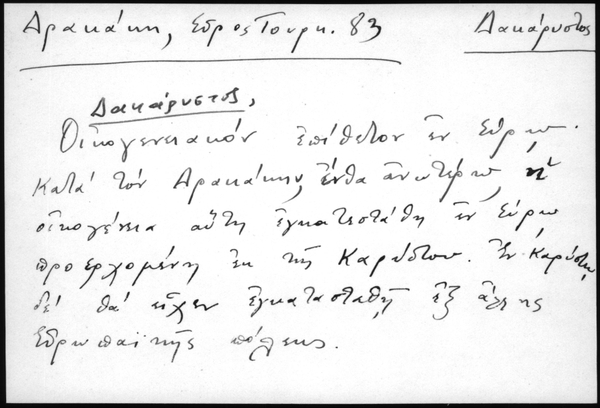 Δρακάκη, Σύρος Τουρκ. 83 Δακάρυστος
Δακάρυστος,
Οἰκογενειακόν ἐπίθετον ἐν Σύρῳ.
Κατά τόν Δρακάκην, ἔνθα ἀνωτέρω, ἡ
οἰκογένεια αὕτη ἐγκατεστάθη ἐν Σύρῳ
προερχομένη ἐκ τῆς Καρύστου. Ἐν Καρύστῳ
δέ θά εἶχεν ἐγκατασταθῆ ἐξ ἄλλης
Εὐρωπαϊκῆς πόλεως.